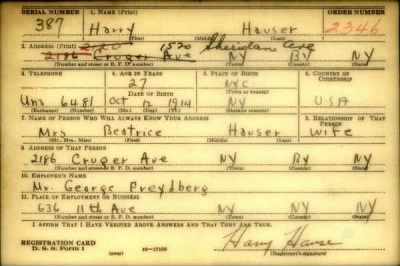 SERIAL NUMBER 1. NAME (Print) ORDER NUMBER
387 Harry Hauser 2346
(First) (Middle) (Last)
2. ADDRESS (Print) 1520 Sheridan Ave
2186 Cruger Ave NY BY NY
(Number and street or R. F. D. number) (Town) (County) (State)
3. TELEPHONE 4. AGE IN YEARS 5. PLACE OF BIRTH 6. COUNTRY OF CITIZENSHIP
27 NYC
DATE OF BIRTH (Town or county)
Un3 6481 Oct 12 1914 NY USA
(Exchange) (Number) (Mo.) (Day) (Yr.) (State or country)
7. NAME OF PERSON WHO WILL ALWAYS KNOW YOUR ADDRESS 8. RELATIONSHIP OF THAT PERSON
Mrs Beatrice Hauser Wife
(Mr., Mrs., Miss) (First) (Middle) (Last)
9. ADDRESS OF THAT PERSON
2186 Cruger Ave NY By NY
(Number and street or R. F. D. number) (Town) (County) (State)
10. EMPLOYER'S NAME
Mr. George Freydberg
11. PLACE OF EMPLOYMENT OR BUSINESS
636 11th Ave NY NY NY
(Number and street or R. F. D. number) (Town) (County) (State)
I AFFIRM THAT I HAVE VERIFIED ABOVE ANSWERS AND THAT THEY ARE TRUE.
REGISTRATION CARD
D. S. S. Form 1 (over) Harry Hauser
(Registrant's signature)